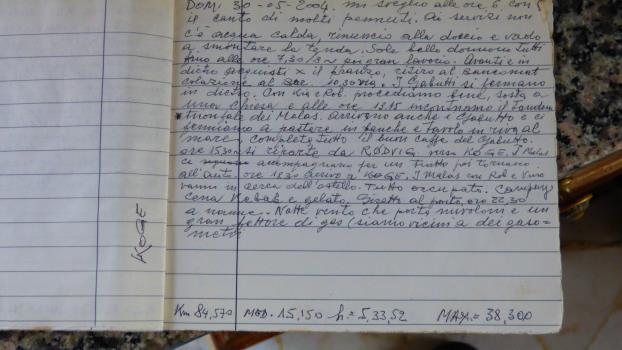 DOM. 30-05-2004. mi sveglio alle ore 6, con
il canto di molti pennuti. Ai servizi non
c'è acqua calda, rinuncio alla doccia e vado
a smontare la tenda. Sole bello dormono tutti
fino alle ore 7,30/8 gran lavorio. Avanti e in
dietro acquisti x il pranzo, ritiro al bancomat
colazione al 10,30 via. I Galutti si fermano
in dietro. Con Rob. procediamo bene, sosta a
una chiesa e alle ore 13.15 incontriamo il Tandem
trionfale dei Melas. arrivano anche i Galutto e ci
fermiamo a pastore in panche e tavolo in riva al
mare, completa tutto il buon caffè del Galutto.
ore 15.30 si riparte da RODVIG verso KØGE. I Melas
ci accompagnano per un tratto poi tornano
all'auto. ore 18.30 arrivo a KØGE. I Melas con Rob e
vanno in cerca dell'ostello. Tutto occupato. Camping
cena Kebab e gelato. Giretti al porto, ore 22,30
a nanna. Notte vento che porta nuvoloni e un
gran fettore di gas (siamo vicini a dei gaso=
metri
KØGE
Km 84,570 MED. 15,150 h = 5,33,52 MAX. = 38,300